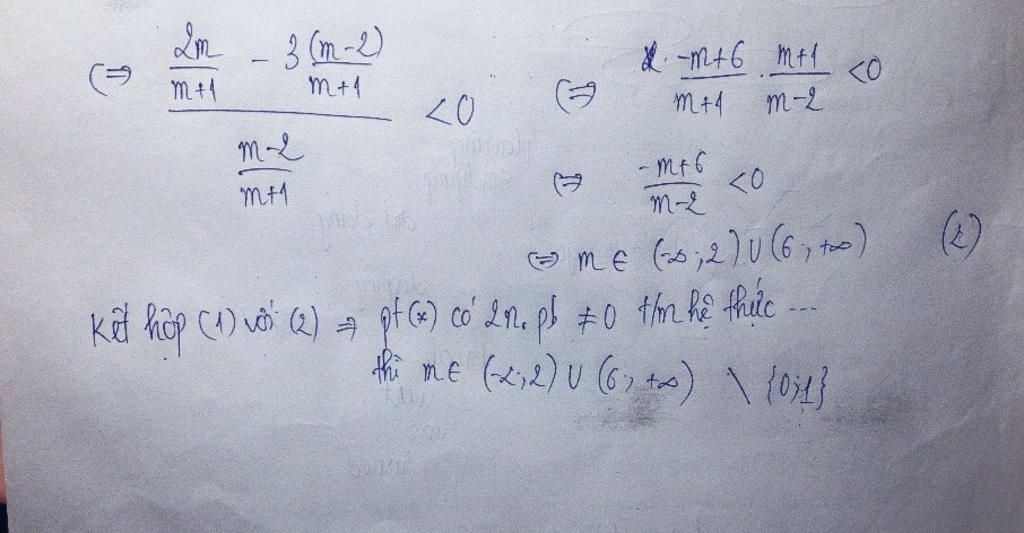 <=> (2m/(m+1) - 3(m-2)/(m+1)) / ((m-2)/(m+1)) < 0
<=> (-m+6)/(m+1) . (m+1)/(m-2) < 0
<=> (-m+6)/(m-2) < 0
<=> m ∈ (-∞; 2) ∪ (6; +∞) (2)
Kết hộp (1) với (2) => pt(*) có 2n. pb ≠ 0 t/m hệ thức ...
thì m ∈ (-∞; 2) ∪ (6; +∞) \ {0;1}